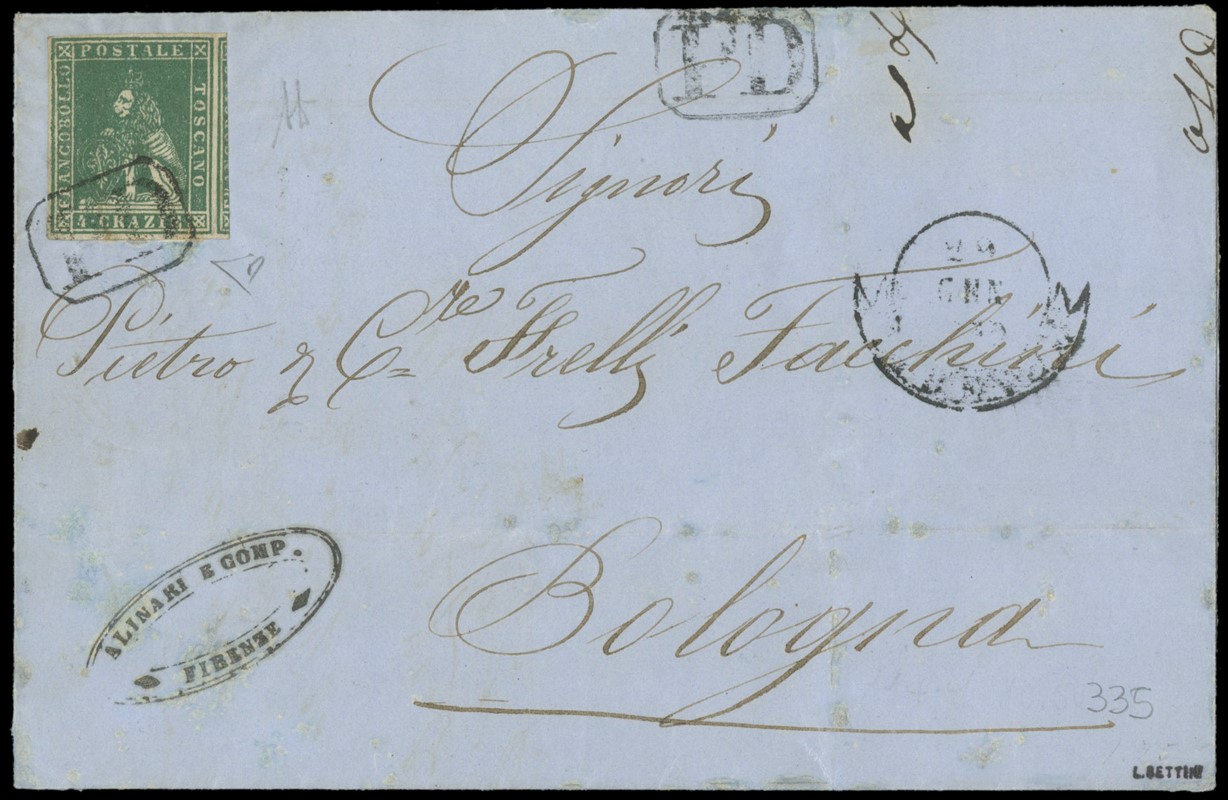 POSTALE
FRANCOBOLLO
TOSCANO
4·CRAZIE
PD
PD
Signori
Pietro & C.re Frelli Facchini
29
GEN
ALINARI E COMP.
FIRENZE
Bologna
335
L. BETTINI